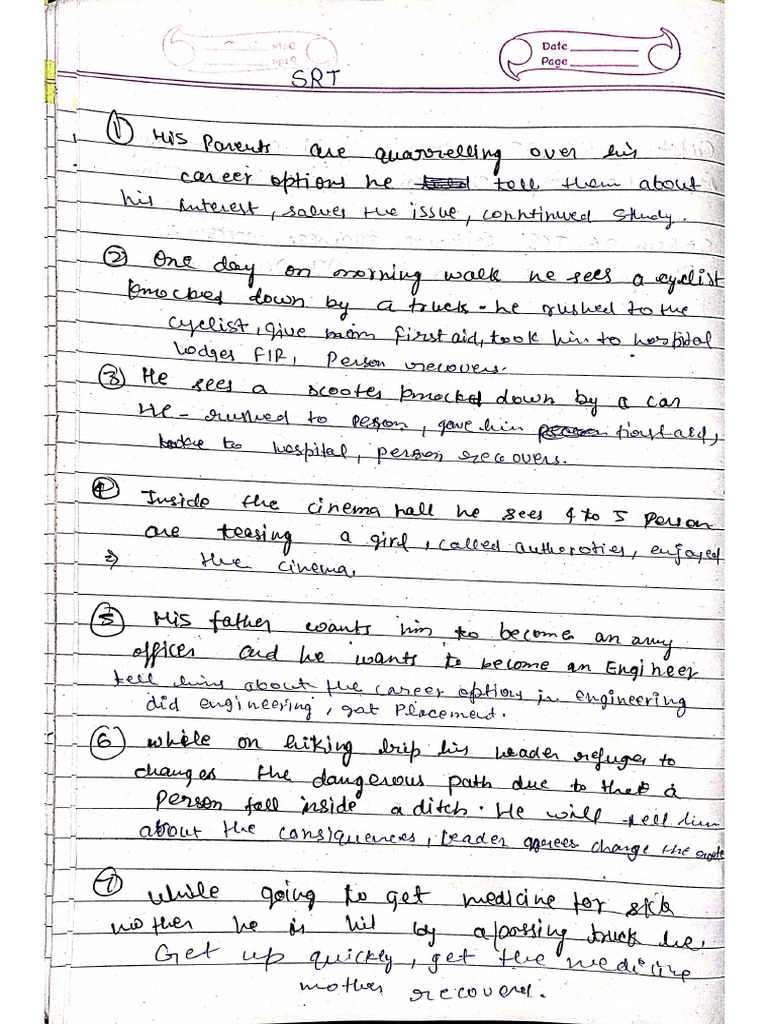 Date
Page
SRT
① His Parents are quarrelling over his
career options he tell them about
his interest, salves the issue, conntinued study.
② One day on morning walk he sees a cyclist
knocked down by a truck. he rushed to the
cyclist, give him first aid, took him to hospital
lodges FIR, Person recovers.
③ He sees a scooter knocked down by a car
He - rushed to person, gave him first aid,
to hospital, person recovers.
④ Inside the cinema hall he sees 4 to 5 person
are teasing a girl, called authoroties, enjoyed
⇒ the cinema.
⑤ His father wants him to become an army
officer and he wants to become an Engineer
tell him about the career options in engineering
did engineering, got Placement.
⑥ while on hiking trip his leader refuges to
changes the dangerous path due to that a
person fall inside a ditch. He will tell him
about the consiquences, leader agrees change the
⑦ while going to get medicine for sick
mother he is hit by a passing truck he.
Get up quickly, get the medicine
mother recovered.